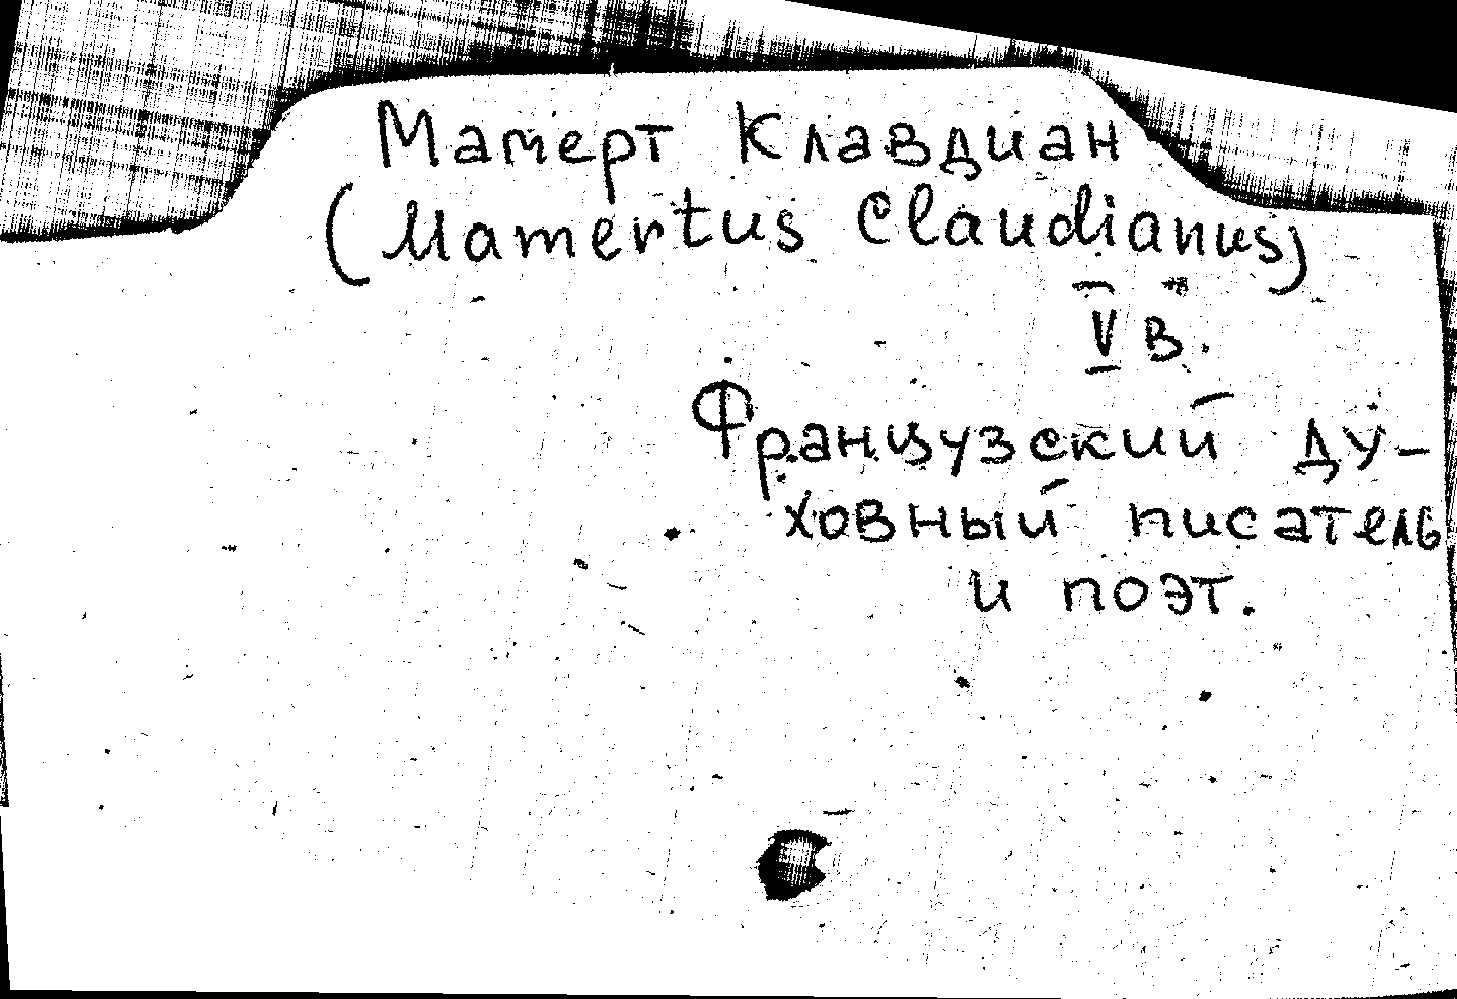 Мамерт Клавдиан
(Mamertus Claudianus)
V в.
Французский ду-
ховный писатель
и поэт.